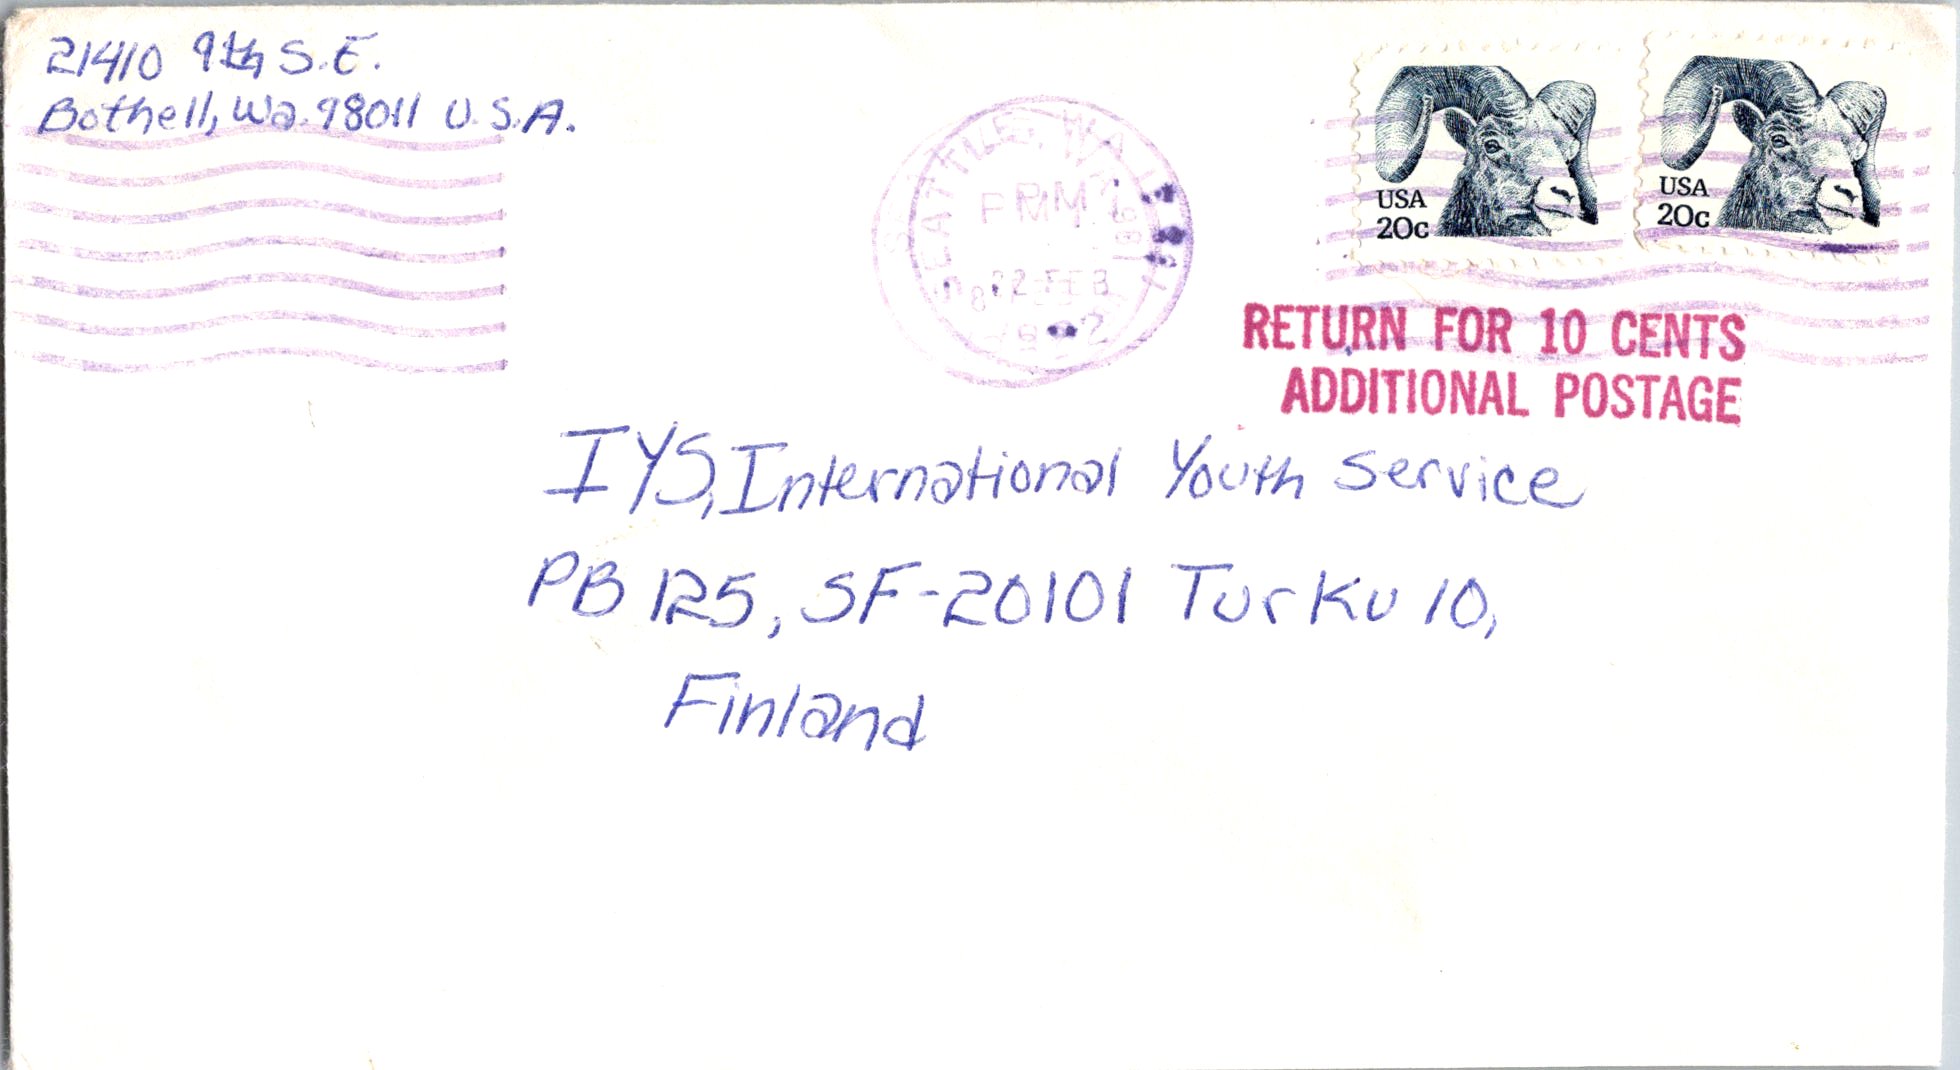 21410 9th S.E.
Bothell, Wa. 98011 U.S.A.
SEATTLE, WA
PM
22 FEB
1982
USA
20c
USA
20c
RETURN FOR 10 CENTS
ADDITIONAL POSTAGE
IYS, International Youth Service
PB 125, SF-20101 Turku 10,
Finland